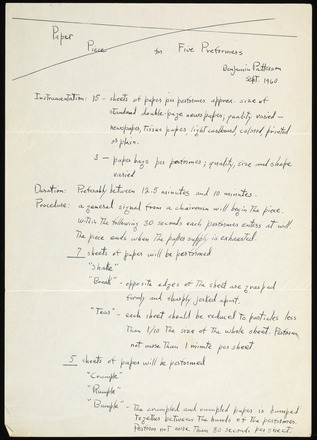 Paper
Piece for Five Preformers
Benjamin Patterson
Sept. 1960
Instrumentation: 15 - sheets of paper per performer approx. size of
standard double-page newspaper; quality varied -
newspaper, tissue paper, light cardboard, colored, printed
or plain.
3 - paper bags per performer; quality, size and shape
varied
Duration: Preferably between 12.5 minutes and 10 minutes.
Procedure: a general signal from a chairman will begin the piece.
Within the following 30 seconds each performer enters at will.
The piece ends when the paper supply is exhausted.
7 sheets of paper will be performed
"Shake"
"Break" - opposite edges of the sheet are grasped
firmly and sharply jerked apart.
"Tear" - each sheet should be reduced to particles less
than 1/10 the size of the whole sheet. Perform
not more than 1 minute per sheet.
5 sheets of paper will be performed
"Crumple"
"Rumple"
"Bumple" - the crumpled and rumpled paper is bumped
together between the hands of the performers.
Perform not more than 30 seconds per sheet.